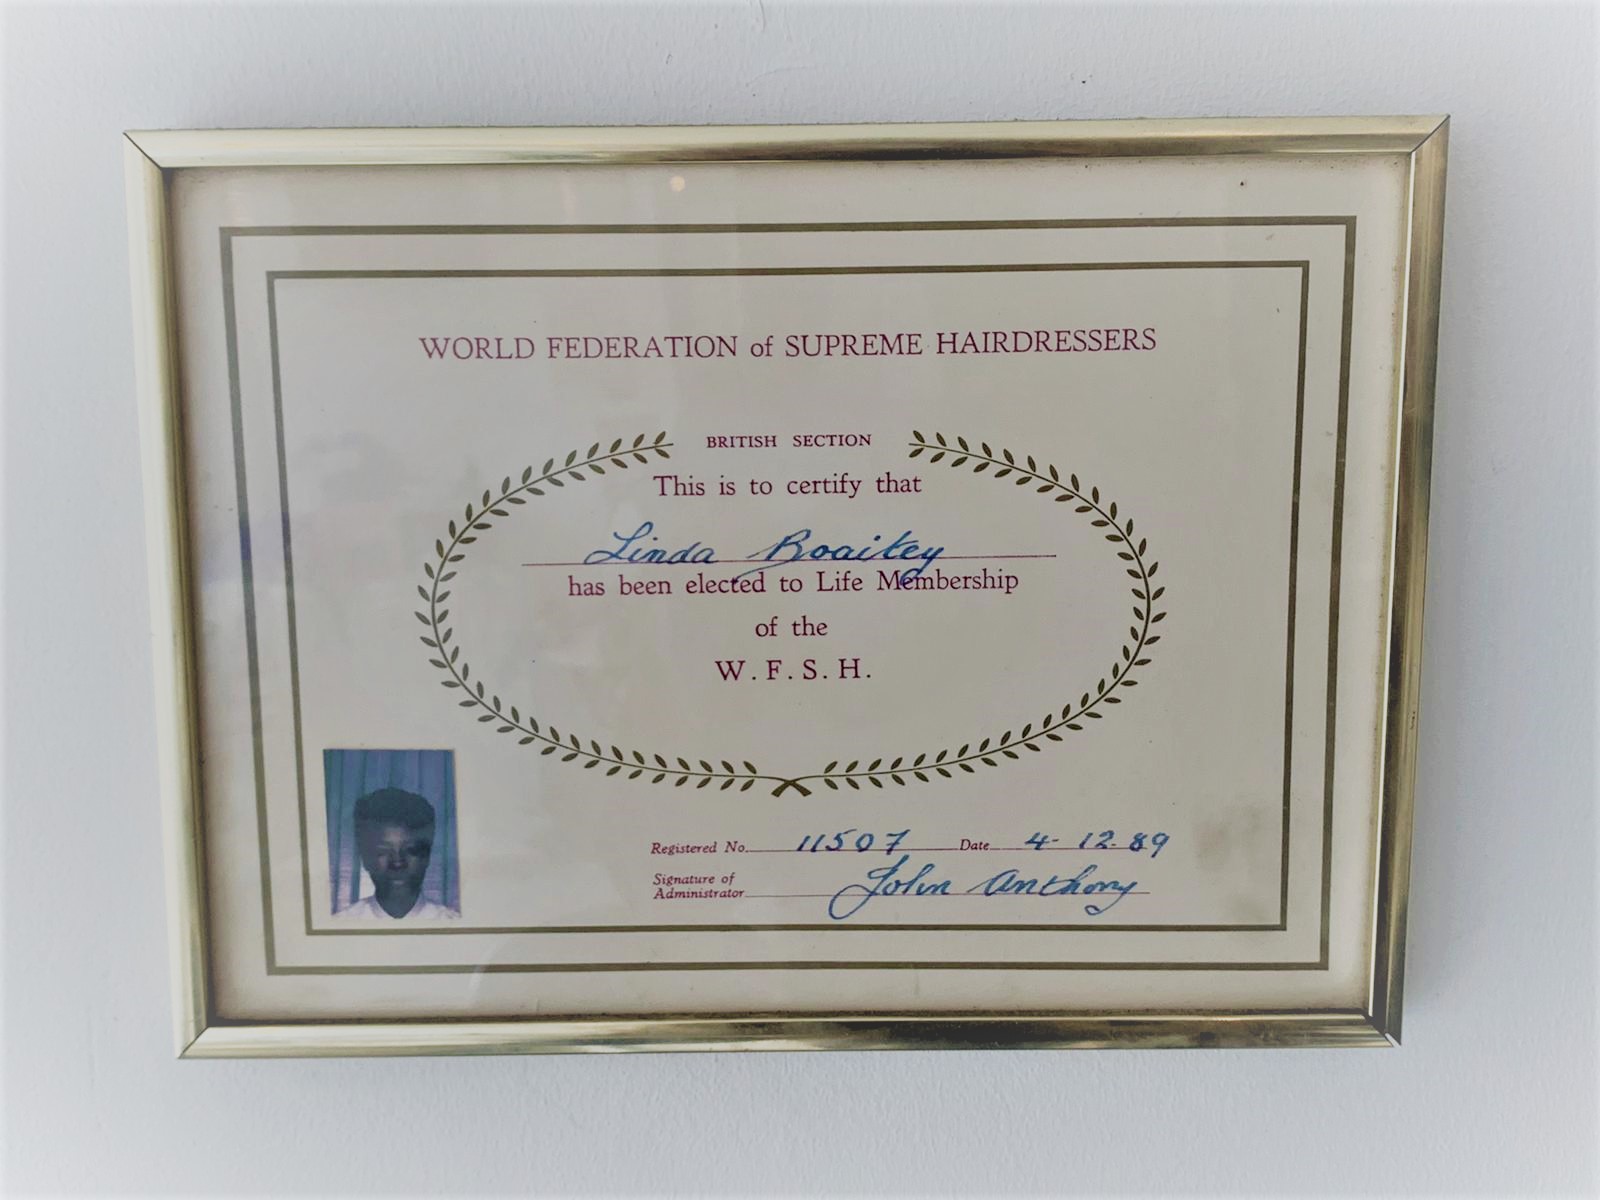 WORLD FEDERATION of SUPREME HAIRDRESSERS
BRITISH SECTION
This is to certify that
Linda Boaikey
has been elected to Life Membership
of the
W.F.S.H.
Registered No. 11507 Date 4-12-89
Signature of
Administrator John Anthony